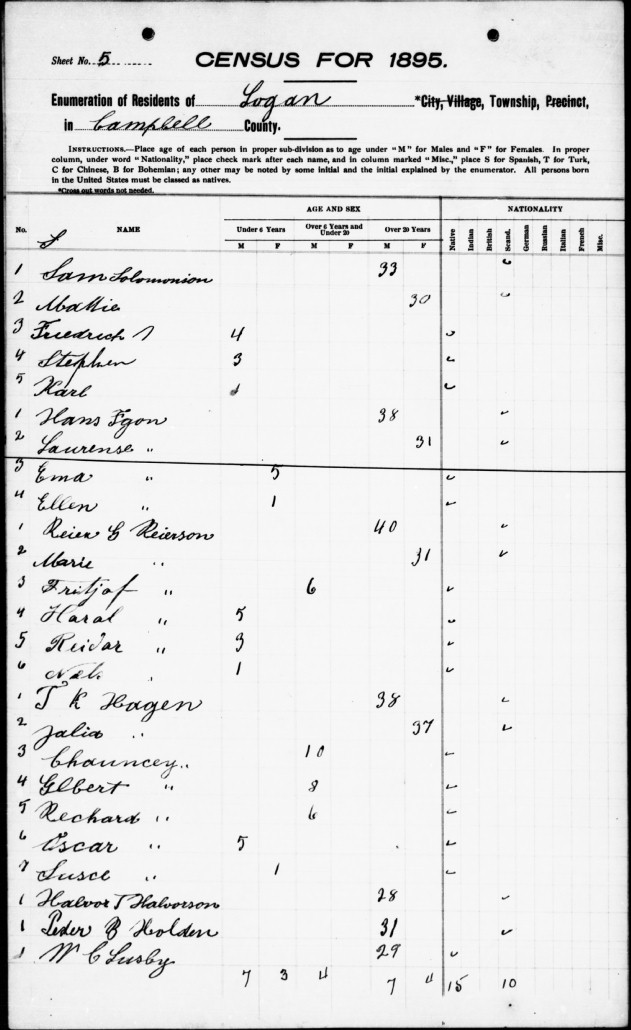 Sheet No. 5
CENSUS FOR 1895.
Enumeration of Residents of Logan *City, Village, Township, Precinct,
in Campbell County.
INSTRUCTIONS.—Place age of each person in proper sub-division as to age under "M" for Males and "F" for Females. In proper
column, under word "Nationality," place check mark after each name, and in column marked "Misc.," place S for Spanish, T for Turk,
C for Chinese, B for Bohemian; any other may be noted by some initial and the initial explained by the enumerator. All persons born
in the United States must be classed as natives.
*Cross out words not needed.
AGE AND SEX NATIONALITY
No. NAME Under 6 Years Over 6 Years and Under 20 Over 20 Years Native Indian British Scand. German Russian Italian French Misc.
M F M F M F
1 Sam Solomonson 33 ✓
2 Mattie 30 ✓
3 Friedrich 4 ✓
4 Stephen 3 ✓
5 Karl ✓
1 Hans Egon 38 ✓
2 Laurense " 31 ✓
3 Ema " 5 ✓
4 Ellen " 1 ✓
1 Reier G Reierson 40 ✓
2 Marie " 31 ✓
3 Fritjof " 6 ✓
4 Haral " 5 ✓
5 Reidar " 3 ✓
6 " 1 ✓
1 T K Hagen 38 ✓
2 Julia " 37 ✓
3 Chauncey " 10 ✓
4 Glbert " 8 ✓
5 Rechard " 6 ✓
6 Oscar " 5 ✓
7 Susce " 1 ✓
1 Halvor T Halvorson 28 ✓
1 Peder B Holden 31 ✓
1 W C Lusby 29 ✓
7 3 4 7 4 15 10